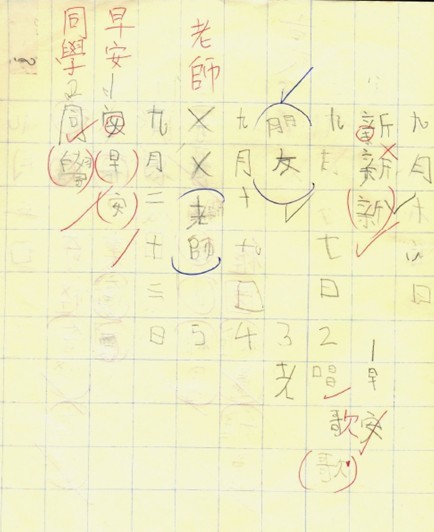 九月十六日
新新新 1早安
九月十七日 2唱歌歌
朋友 3老
九月十九日 4
老師 老師 5
九月二十三日
早安 1安早安
同學 2同學